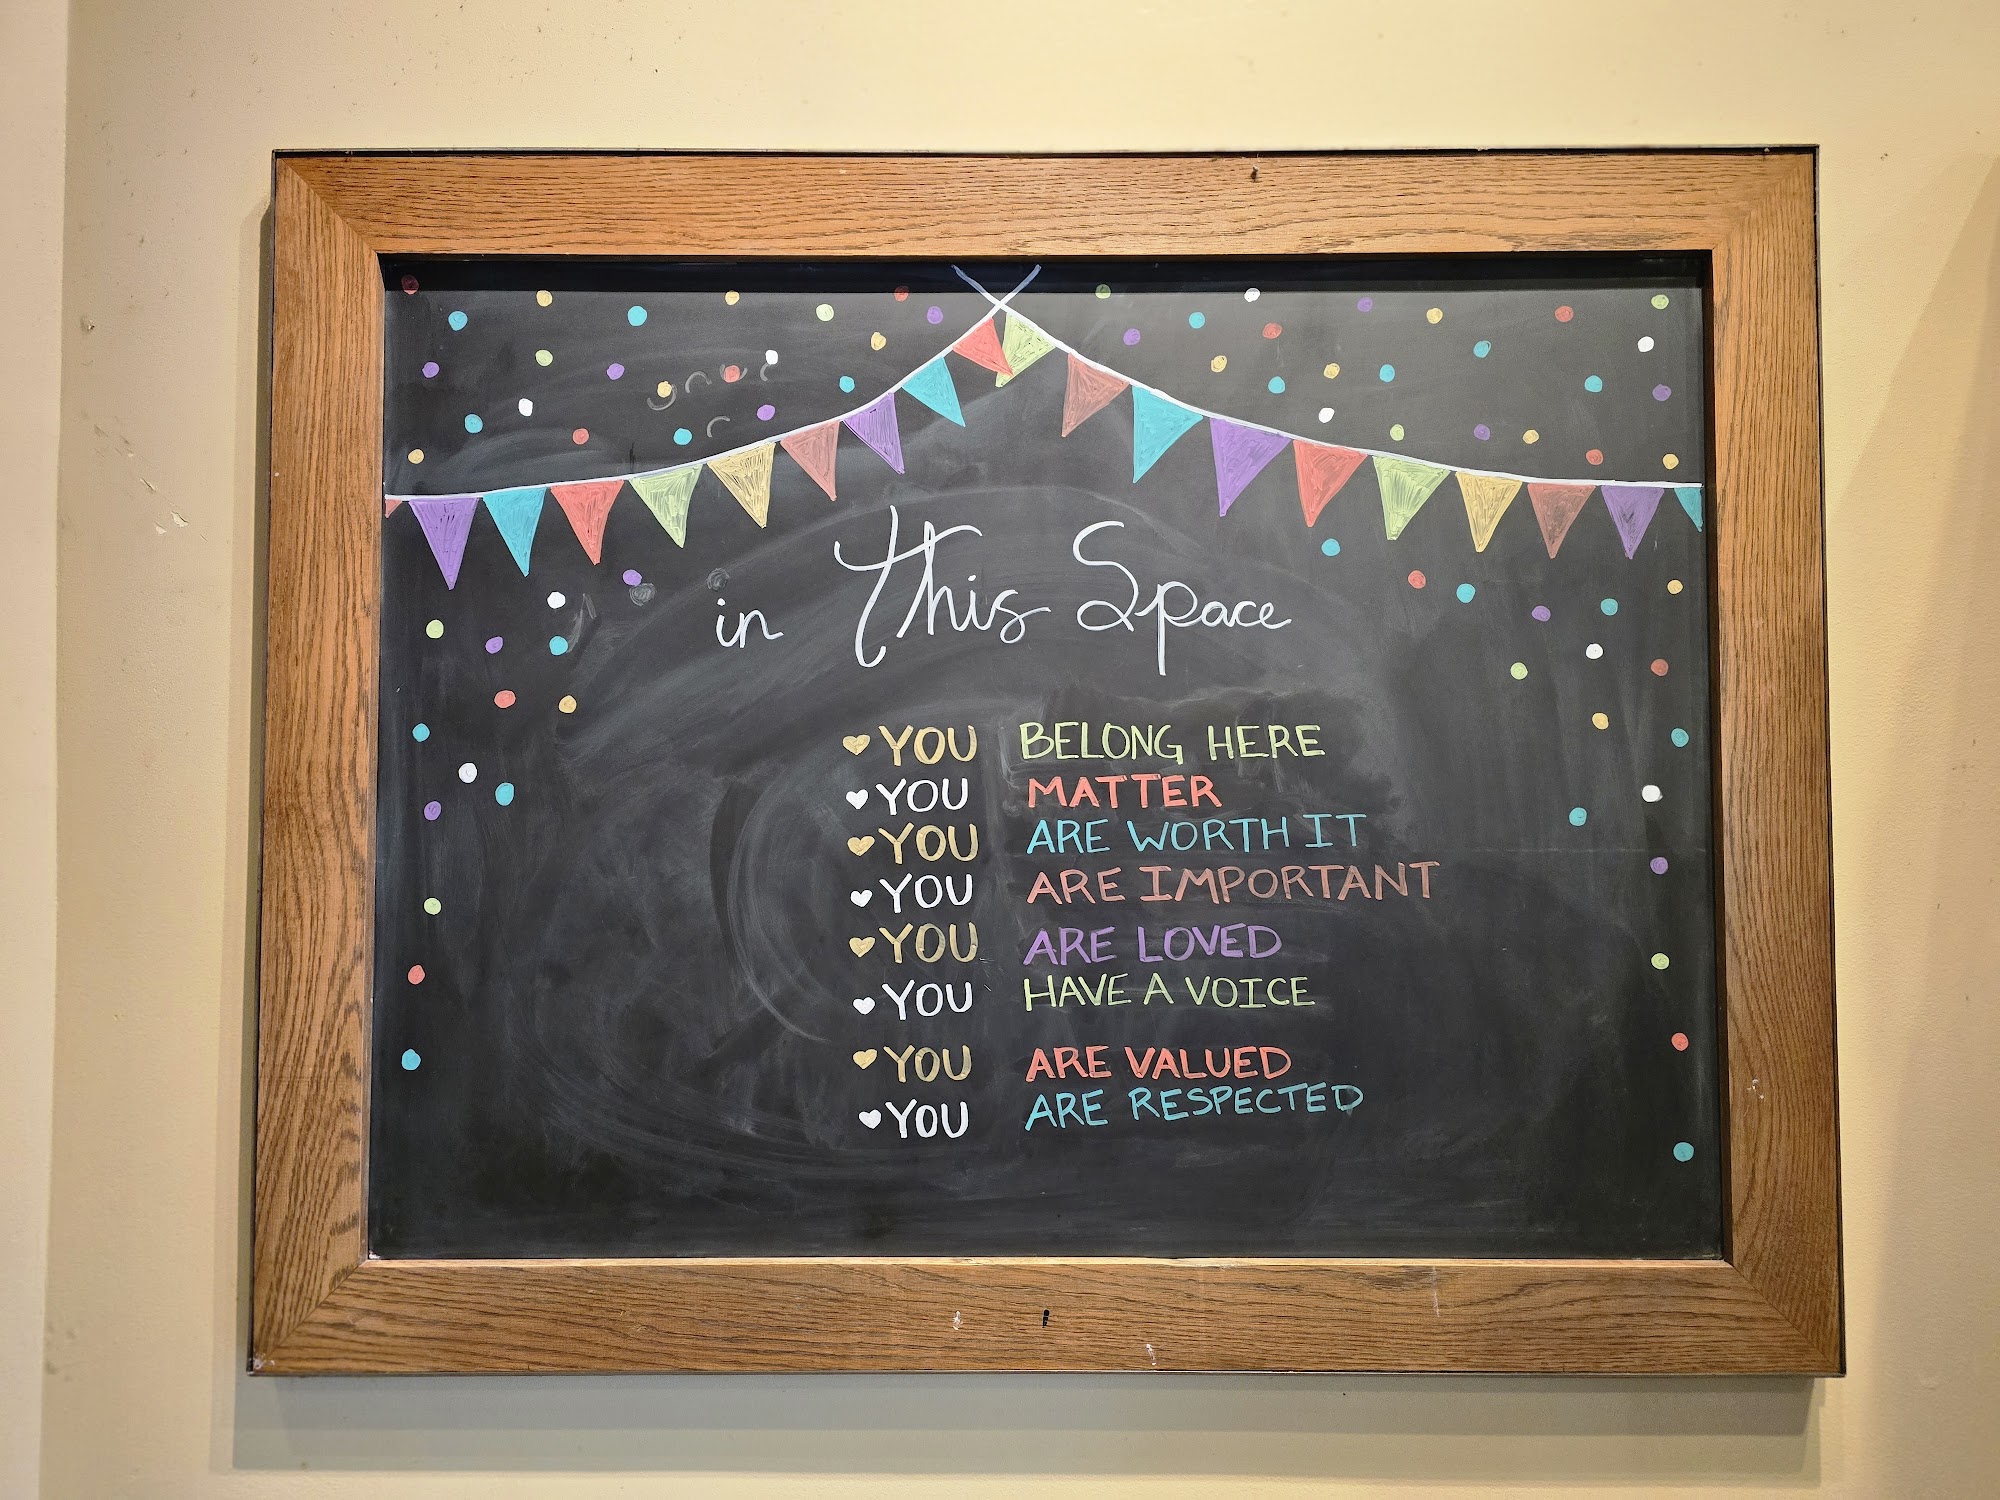 in This Space
YOU BELONG HERE
YOU MATTER
YOU ARE WORTH IT
YOU ARE IMPORTANT
YOU ARE LOVED
YOU HAVE A VOICE
YOU ARE VALUED
YOU ARE RESPECTED